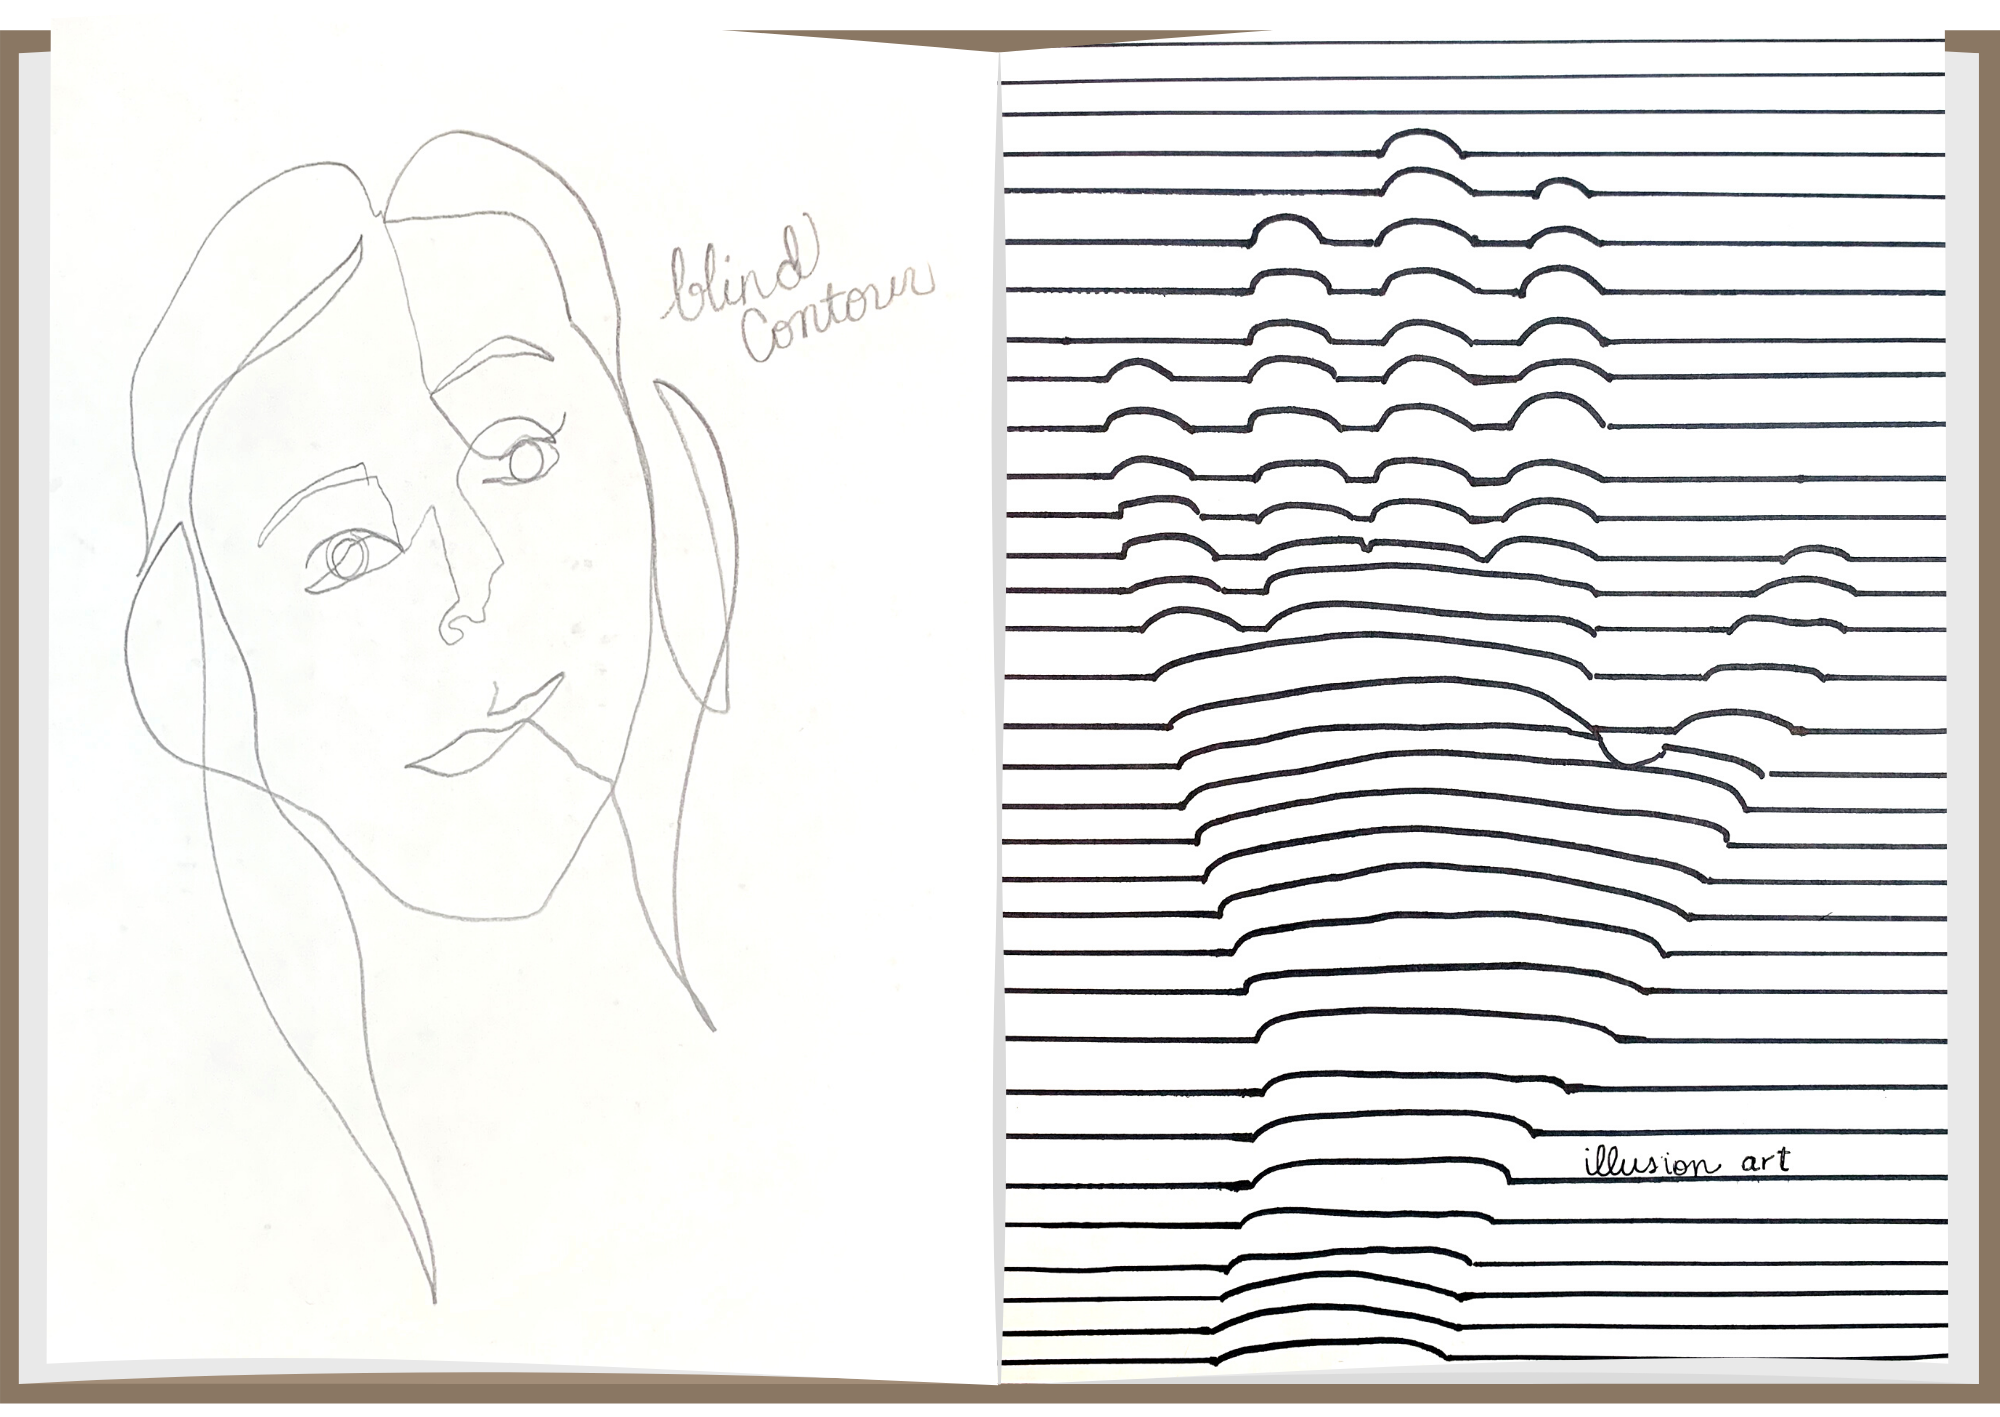 blind
Contour
illusion art